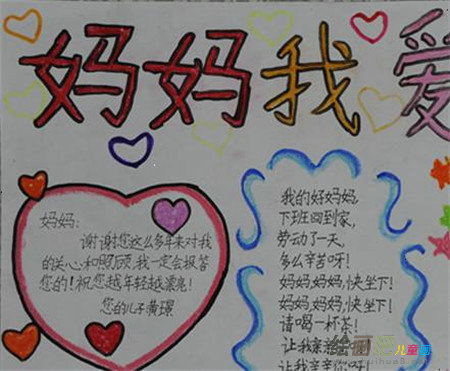 妈妈我爱
妈妈:
谢谢您这么多年来对我
的关心和照顾,我一定会报答
您的!祝您越年轻越漂亮!
您的儿子黄璟
我的好妈妈,
下班回到家,
劳动了一天,
多么辛苦呀!
妈妈,妈妈,快坐下!
妈妈,妈妈,快坐下!
请喝一杯茶!
让我亲亲
让我亲亲你呀!
儿童画